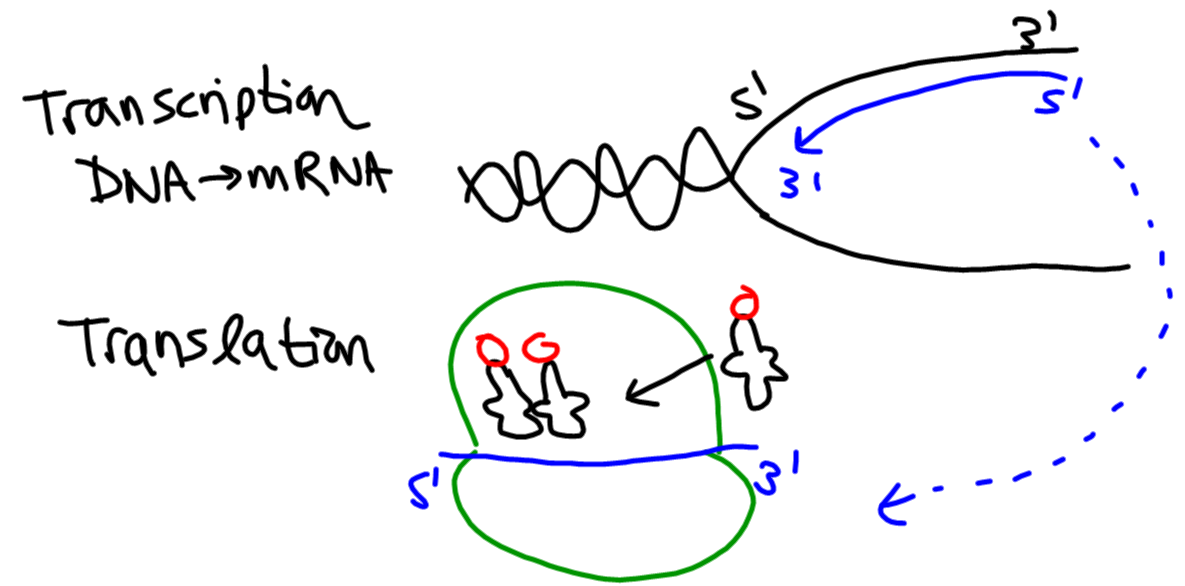 3'
5'
Transcription
5'
DNA→mRNA
3'
Translation
5'
3'